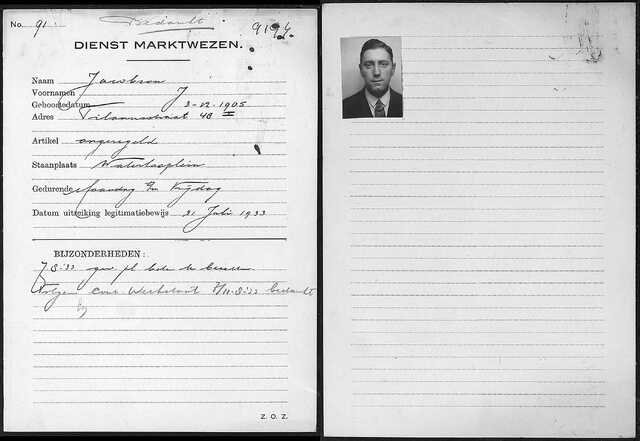 No. 91 Bedankt 9194.
DIENST MARKTWEZEN.
Naam Jacobson
Voornamen J
Geboortedatum 3-12-1905
Adres Tilanusstraat 40 II
Artikel ongeregeld
Staanplaats Waterlooplein
Gedurende Maandag t/m Vrijdag
Datum uitreiking legitimatiebewijs 31 Juli 1933
BIJZONDERHEDEN:
bedankt
Z. O. Z.